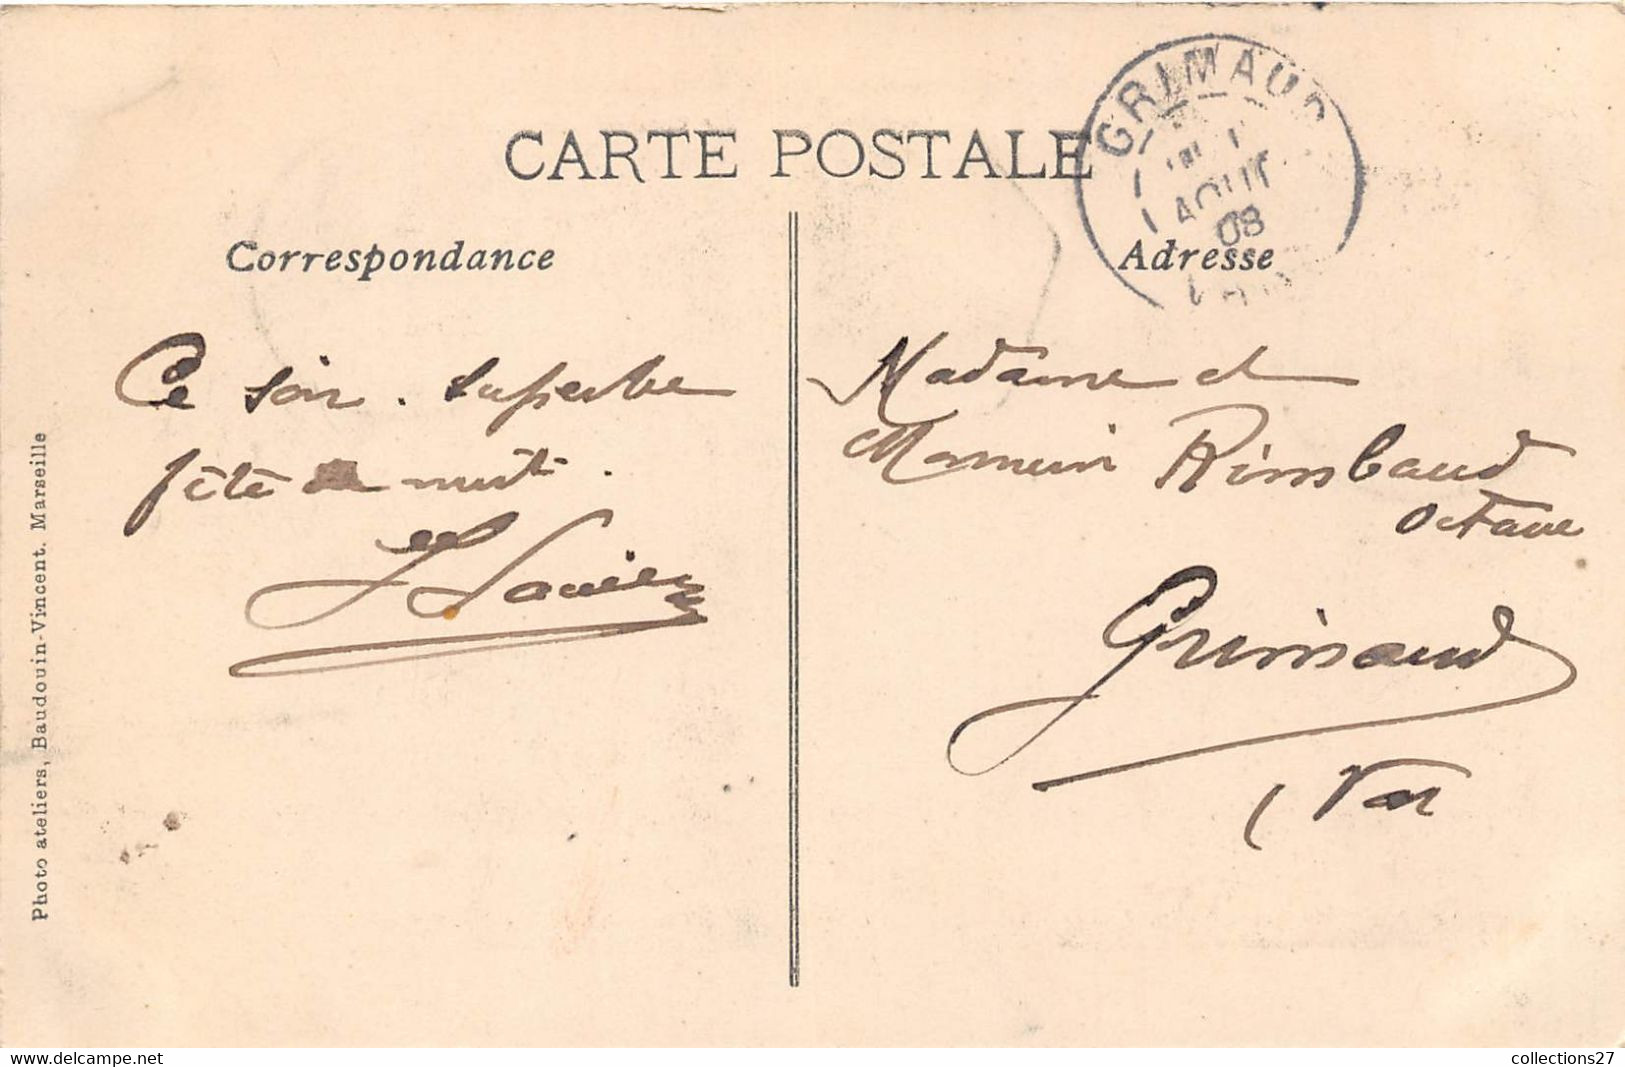 CARTE POSTALE
GRIMAUD
AOUT
08
Correspondance
Adresse
Ce soir. superbe
fête de nuit.
Madame et
Monsieur Rimbaud
Octave
Grimaud
(Var
Photo ateliers, Baudouin-Vincent. Marseille
collections27